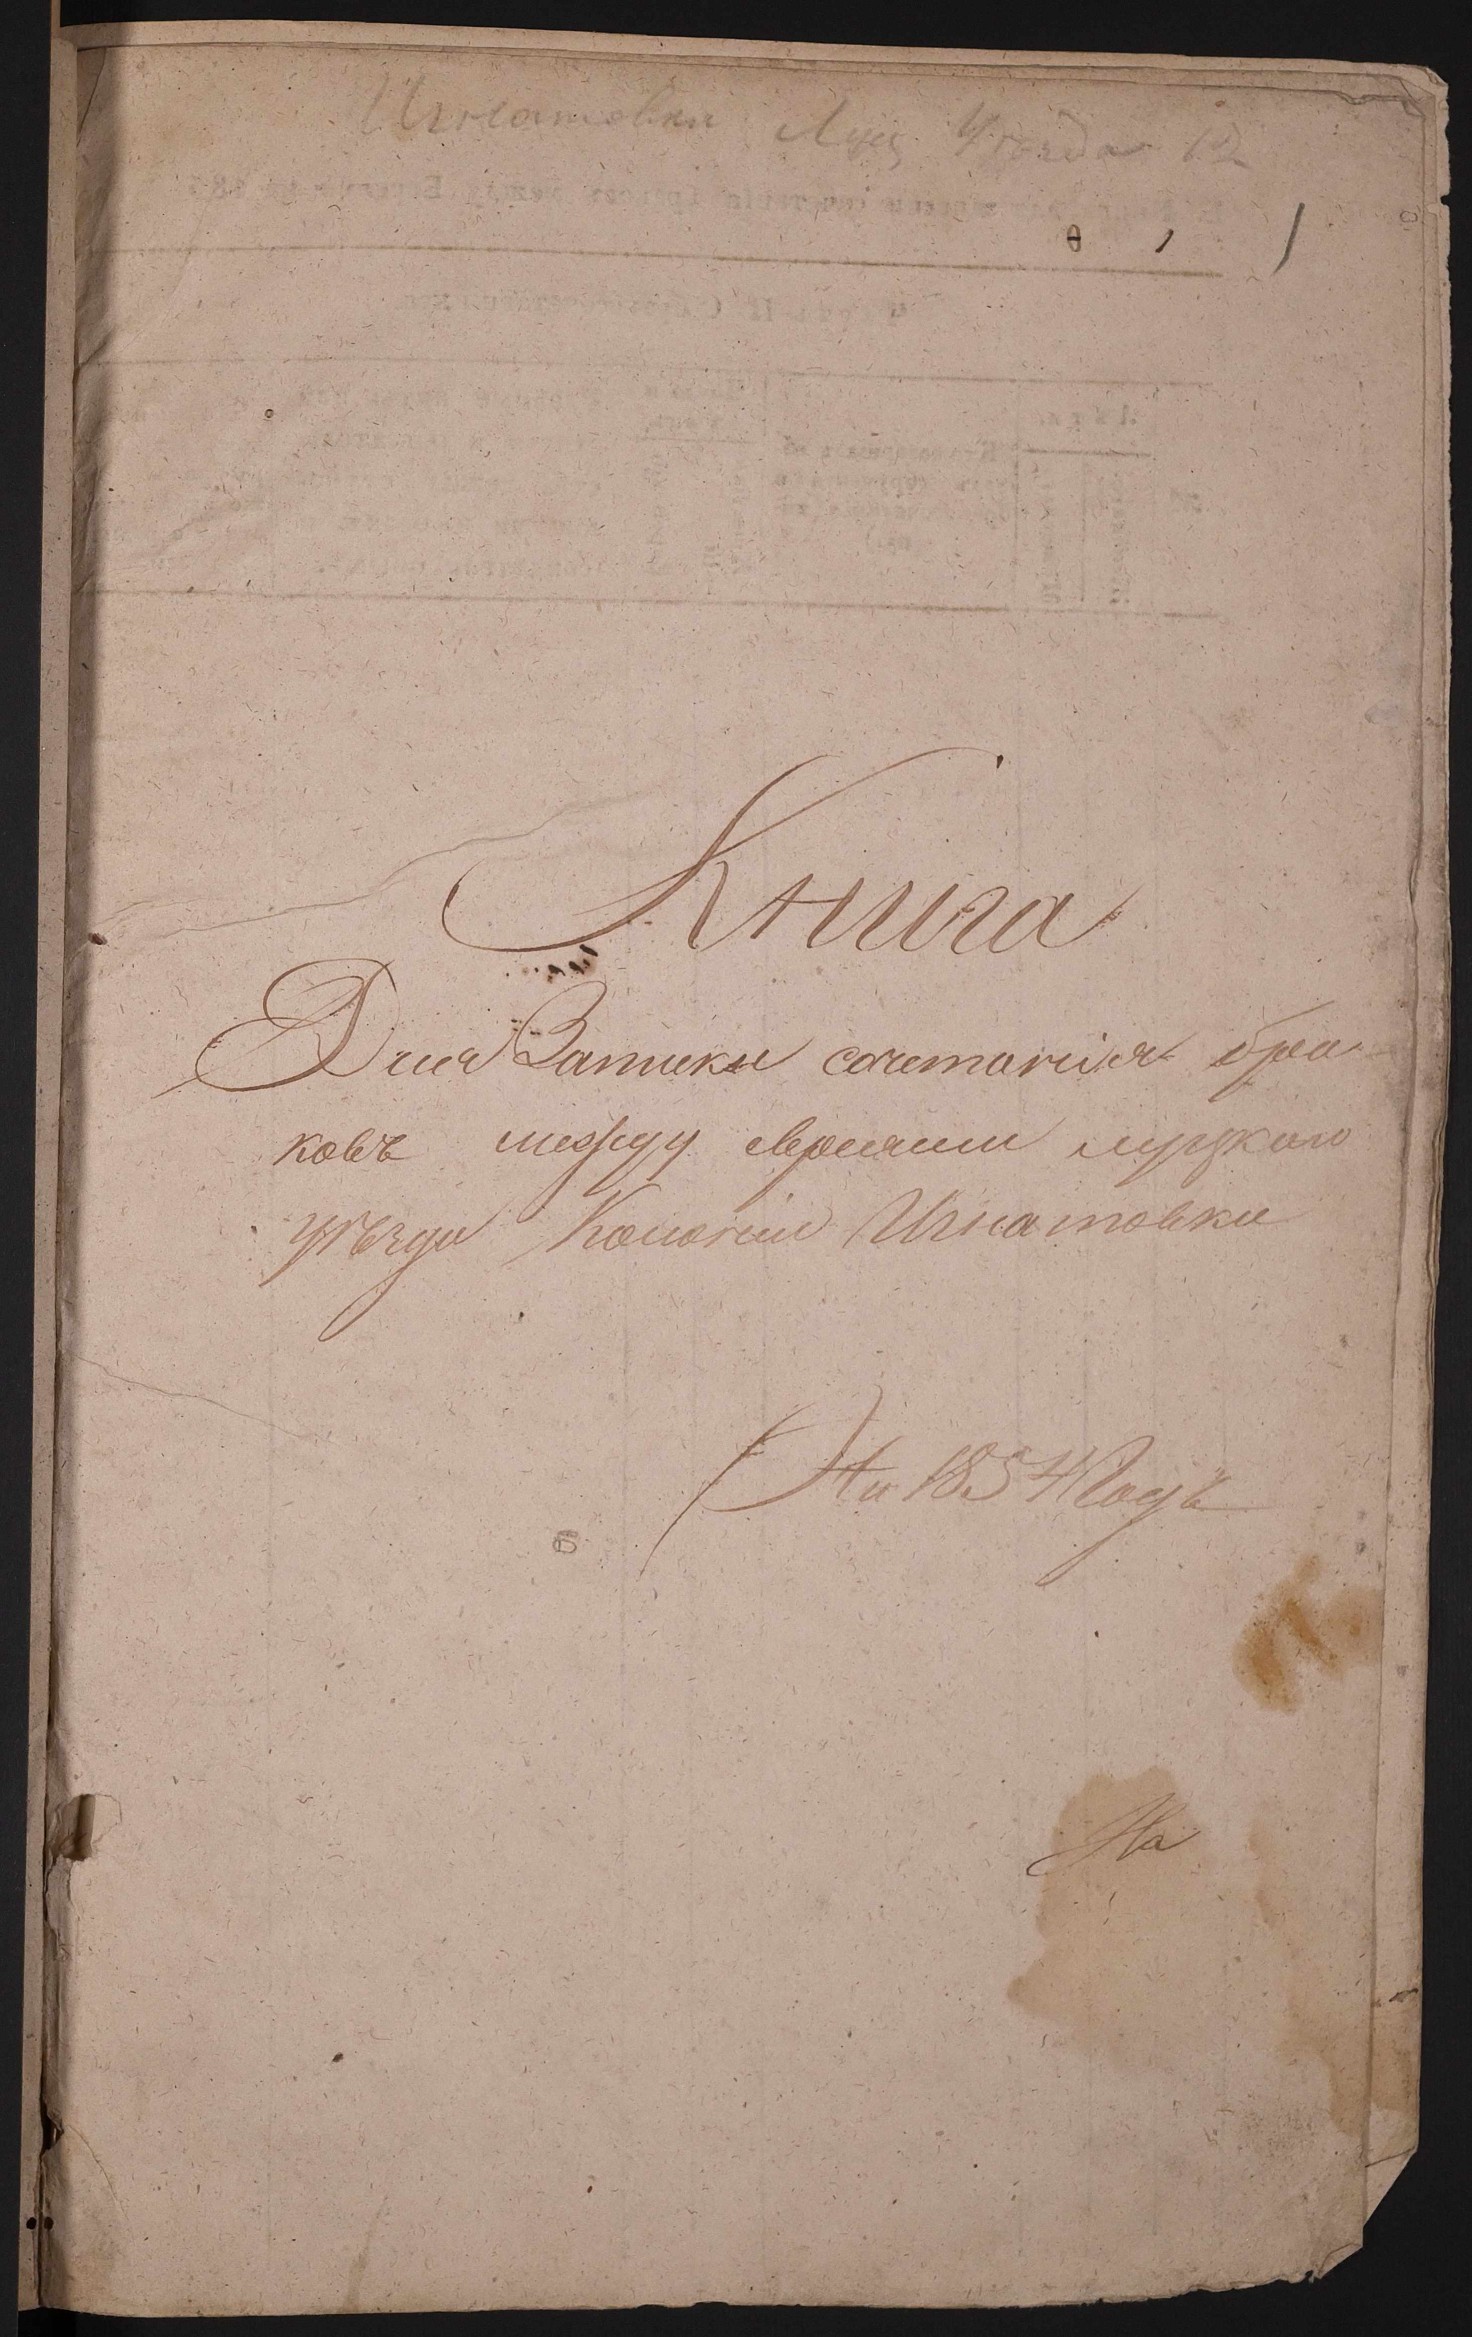 Игнатовки Луц Уезда 12
Книга
Для Записки сочетанія бра-
ковъ между евреями луцкаго
уѣзда Колоніи Игнатовки
На 1854 Годъ
На